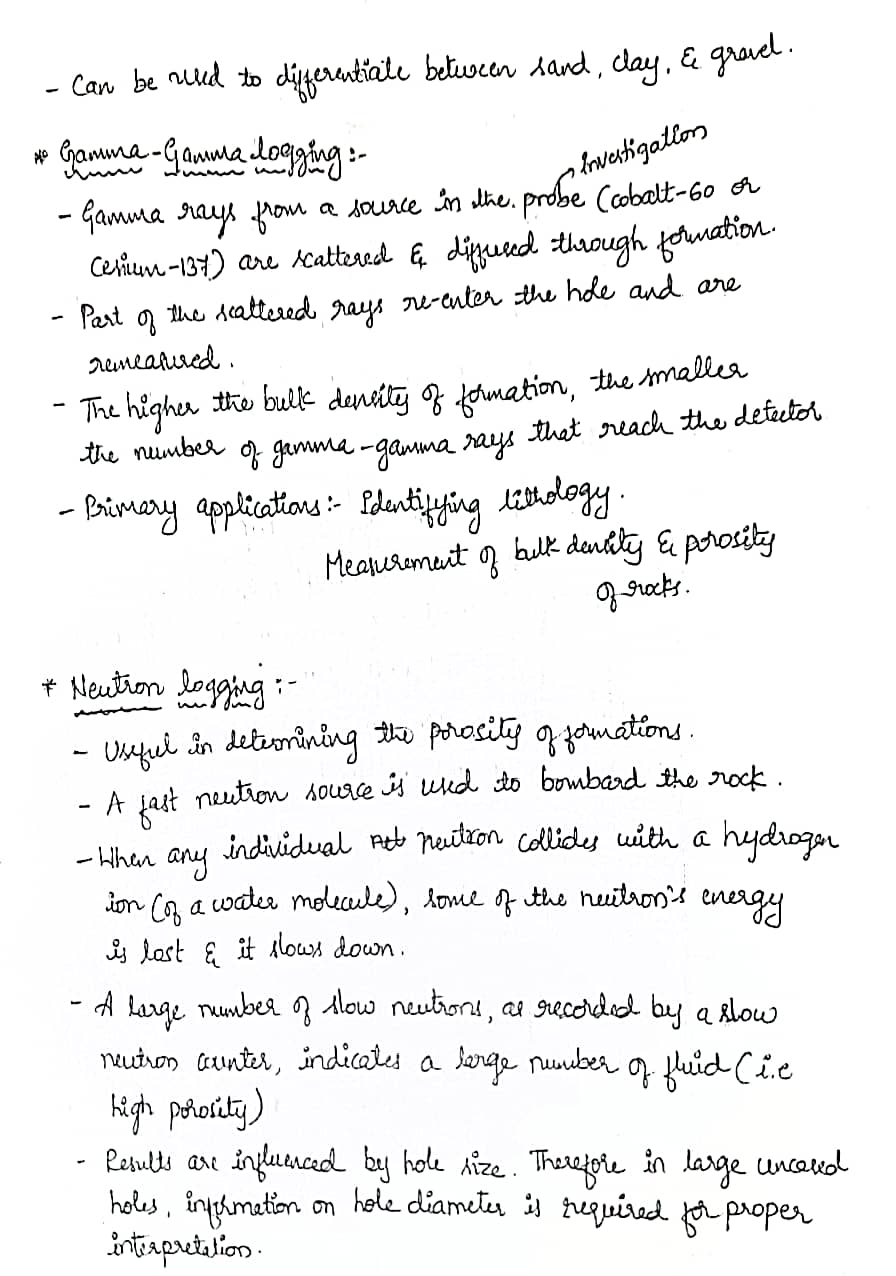 - Can be used to differentiate between sand, clay, & gravel.
* Gamma-Gamma logging :-
Investigation
- Gamma rays from a source in the. probe (cobalt-60 or
Cesium-137) are scattered & diffused through formation.
- Part of the scattered rays re-enter the hole and are
remeasured.
- The higher the bulk density of formation, the smaller
the number of gamma-gamma rays that reach the detector
- Primary applications :- Identifying lithology.
Measurement of bulk density & porosity
of rocks.
* Neutron logging :-
- Useful in determining the porosity of formations.
- A fast neutron source is used to bombard the rock.
- When any individual neutron collides with a hydrogen
ion (of a water molecule), some of the neutron's energy
is lost & it slows down.
- A large number of slow neutrons, as recorded by a slow
neutron counter, indicates a large number of fluid (i.e
high porosity)
- Results are influenced by hole size. Therefore in large uncased
holes, information on hole diameter is required for proper
interpretation.